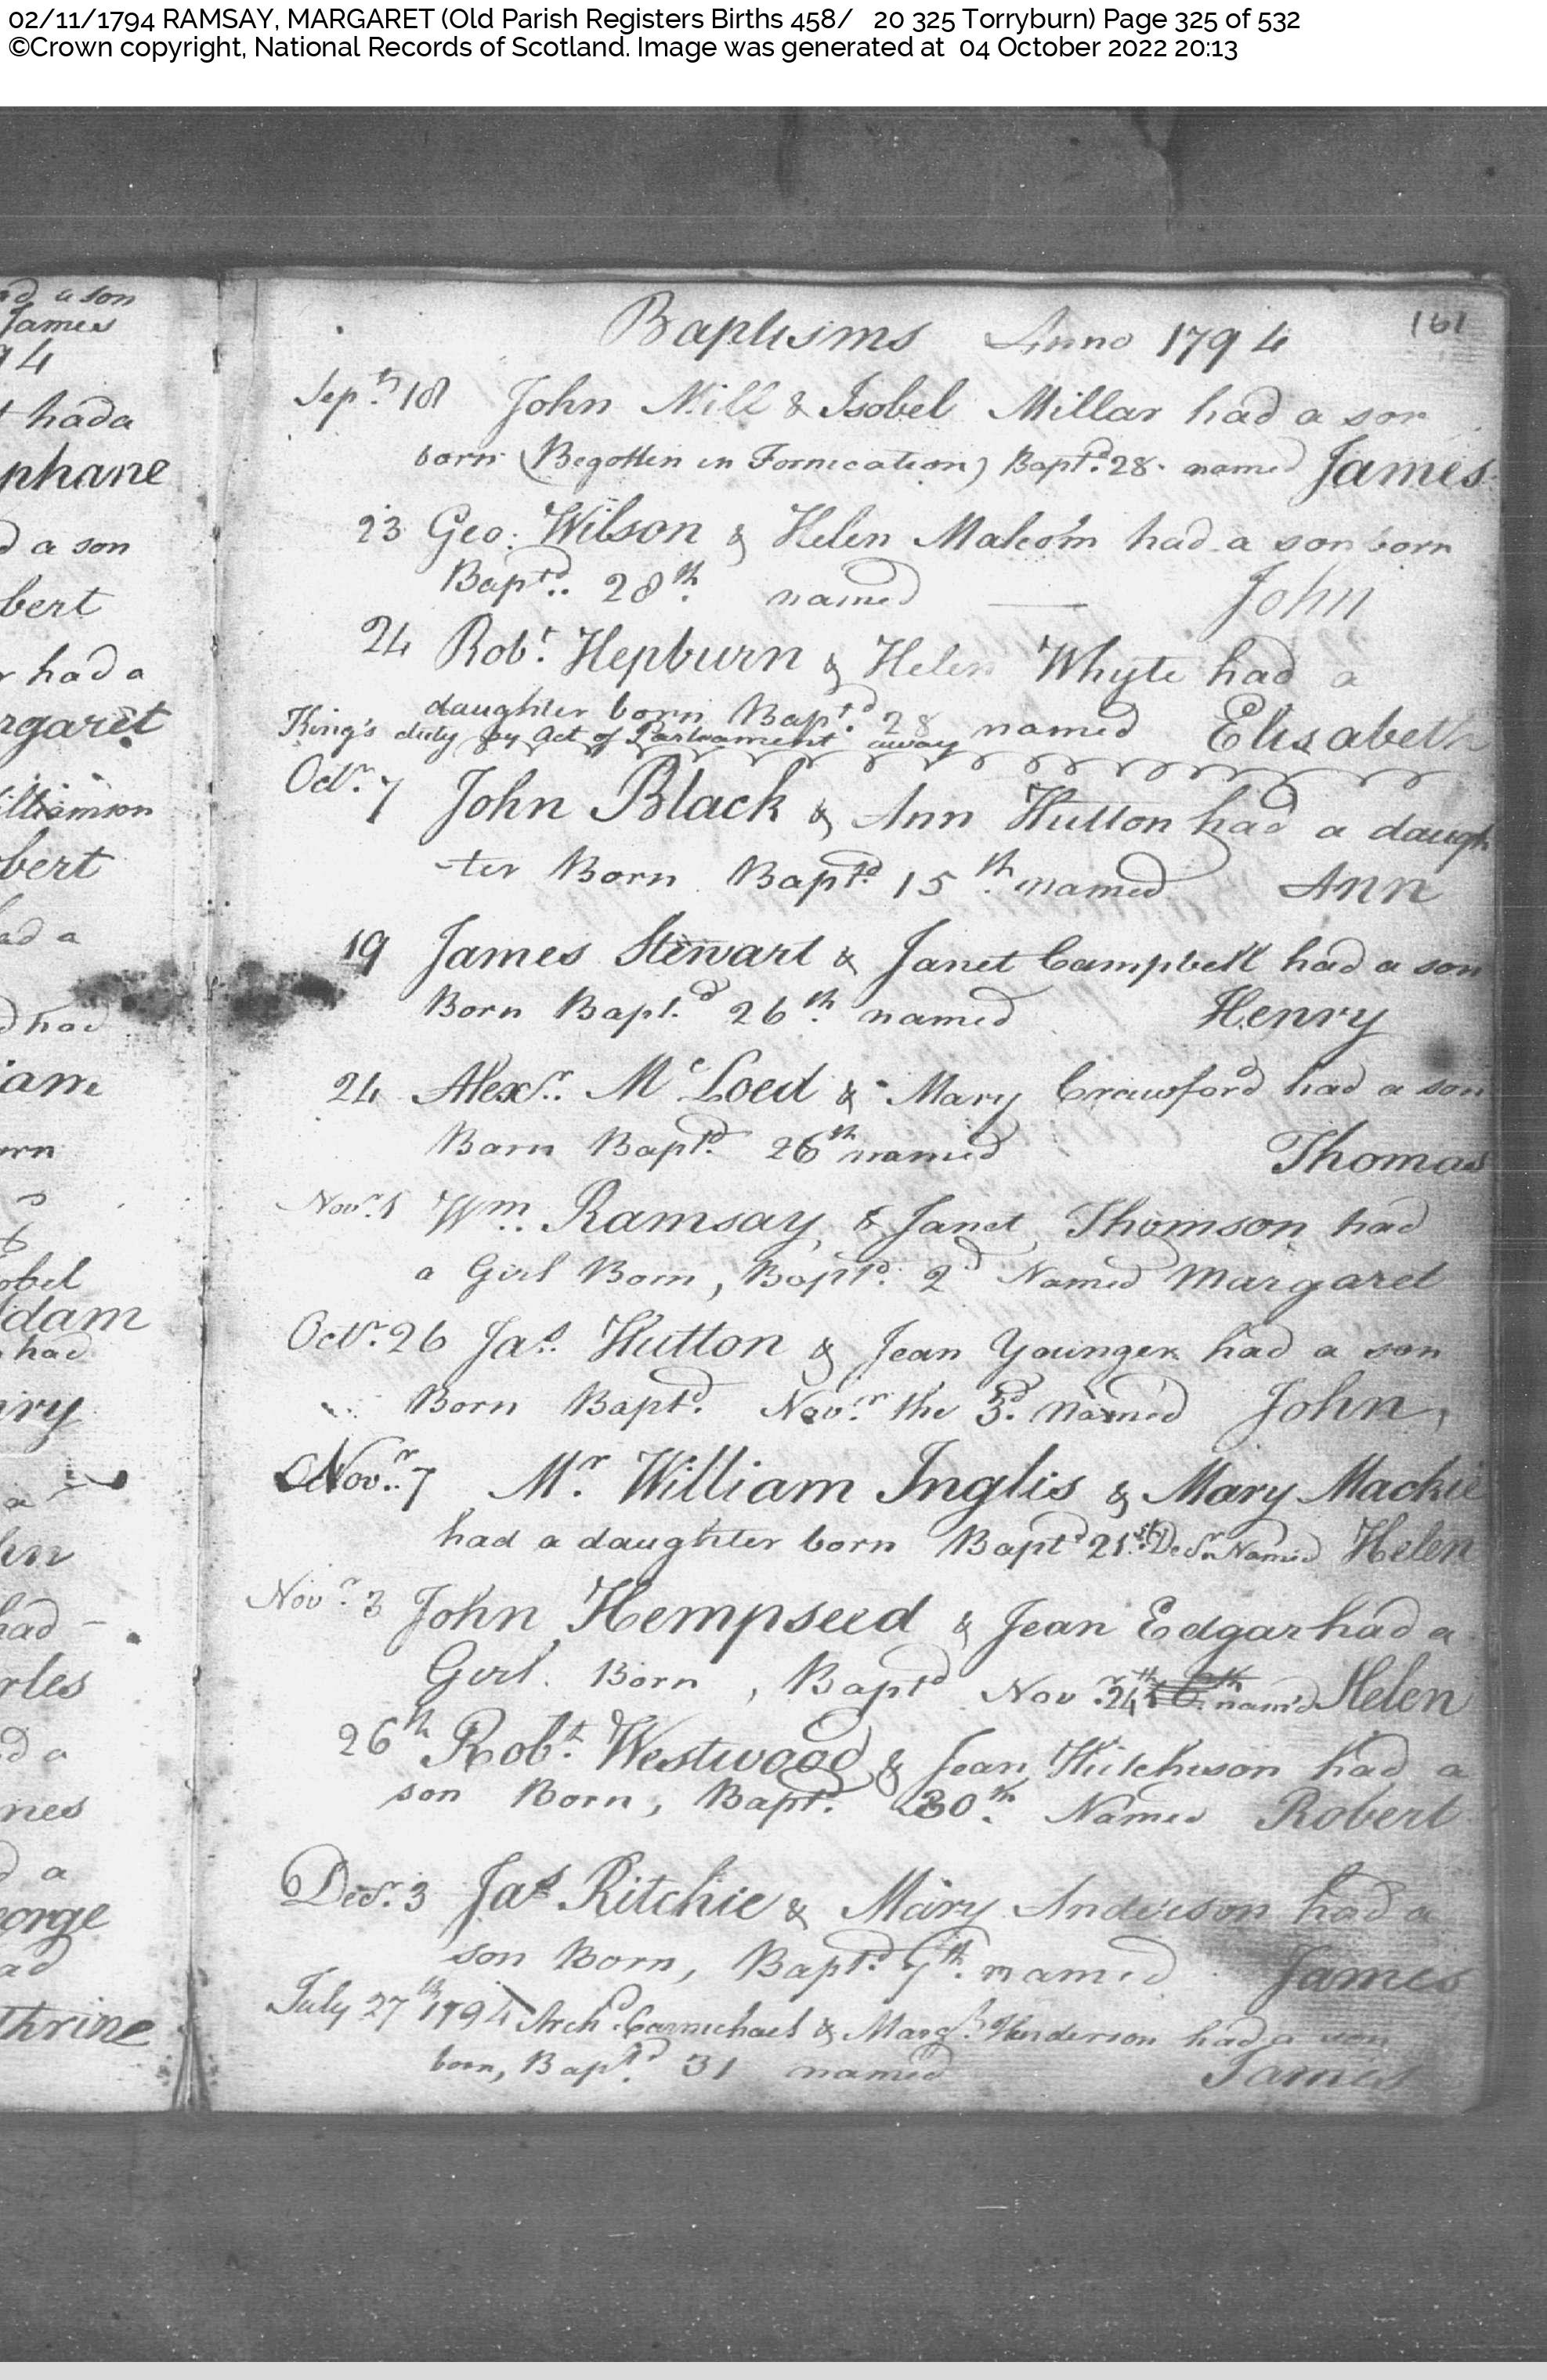 02/11/1794 RAMSAY, MARGARET (Old Parish Registers Births 458/ 20 325 Torryburn) Page 325 of 532
©Crown copyright, National Records of Scotland. Image was generated at 04 October 2022 20:13
ad a son
James
94
t hada
phane
d a son
bert
r had a
rgaret
illiamson
bert
had a
d had
iam
orn
obel
dam
had
nry
a
hn
had –
rles
d a
mes
d a
eorge
ad
thrine
Baptisms Anno 1794 161
Sepr. 18 John Mill & Isobel Millar had a son
born (Begotten in Fornication) Baptd. 28. named James
23 Geo: Wilson & Helen Malcom had a son born
Baptd.. 28th. named — John
24 Robt. Hepburn & Helen Whyte had a
daughter born Baptd. 28 named Elisabeth
King's duty by Act of Parliament away
Octr. 7 John Black & Ann Hutton had a daugh
-ter Born Baptd. 15th. named Ann
19 James Stewart & Janet Campbell had a son
Born Bapt.d 26th. named Henry
24 Alexr. Mc Loed & Mary Crawford had a son
Born Baptd. 26th named Thomas
Novr. 1 Wm. Ramsay, & Janet Thomson had
a Girl Born, Baptd. 2d Named Margaret
Octr. 26 Jas. Hutton & Jean Younger had a son
Born Baptd. Novr. the 3d. Named John,
Novr. 7 Mr. William Inglis & Mary Mackie
had a daughter born Baptd 21st. Decr. Named Helen
Novr. 3 John Hempseed & Jean Edgar had a
Girl. Born, Baptd Novr. 24th nam'd Helen
26th Robt. Westwood & Jean Hutchison had a
son Born, Baptd. 30th. Named Robert
Decr. 3 Jas Ritchie & Mary Anderson had a
son Born, Baptd. 7th. named James
July 27th 1794 Archd. Carmichael & Margt. Henderson had a son
born, Baptd. 31 named James